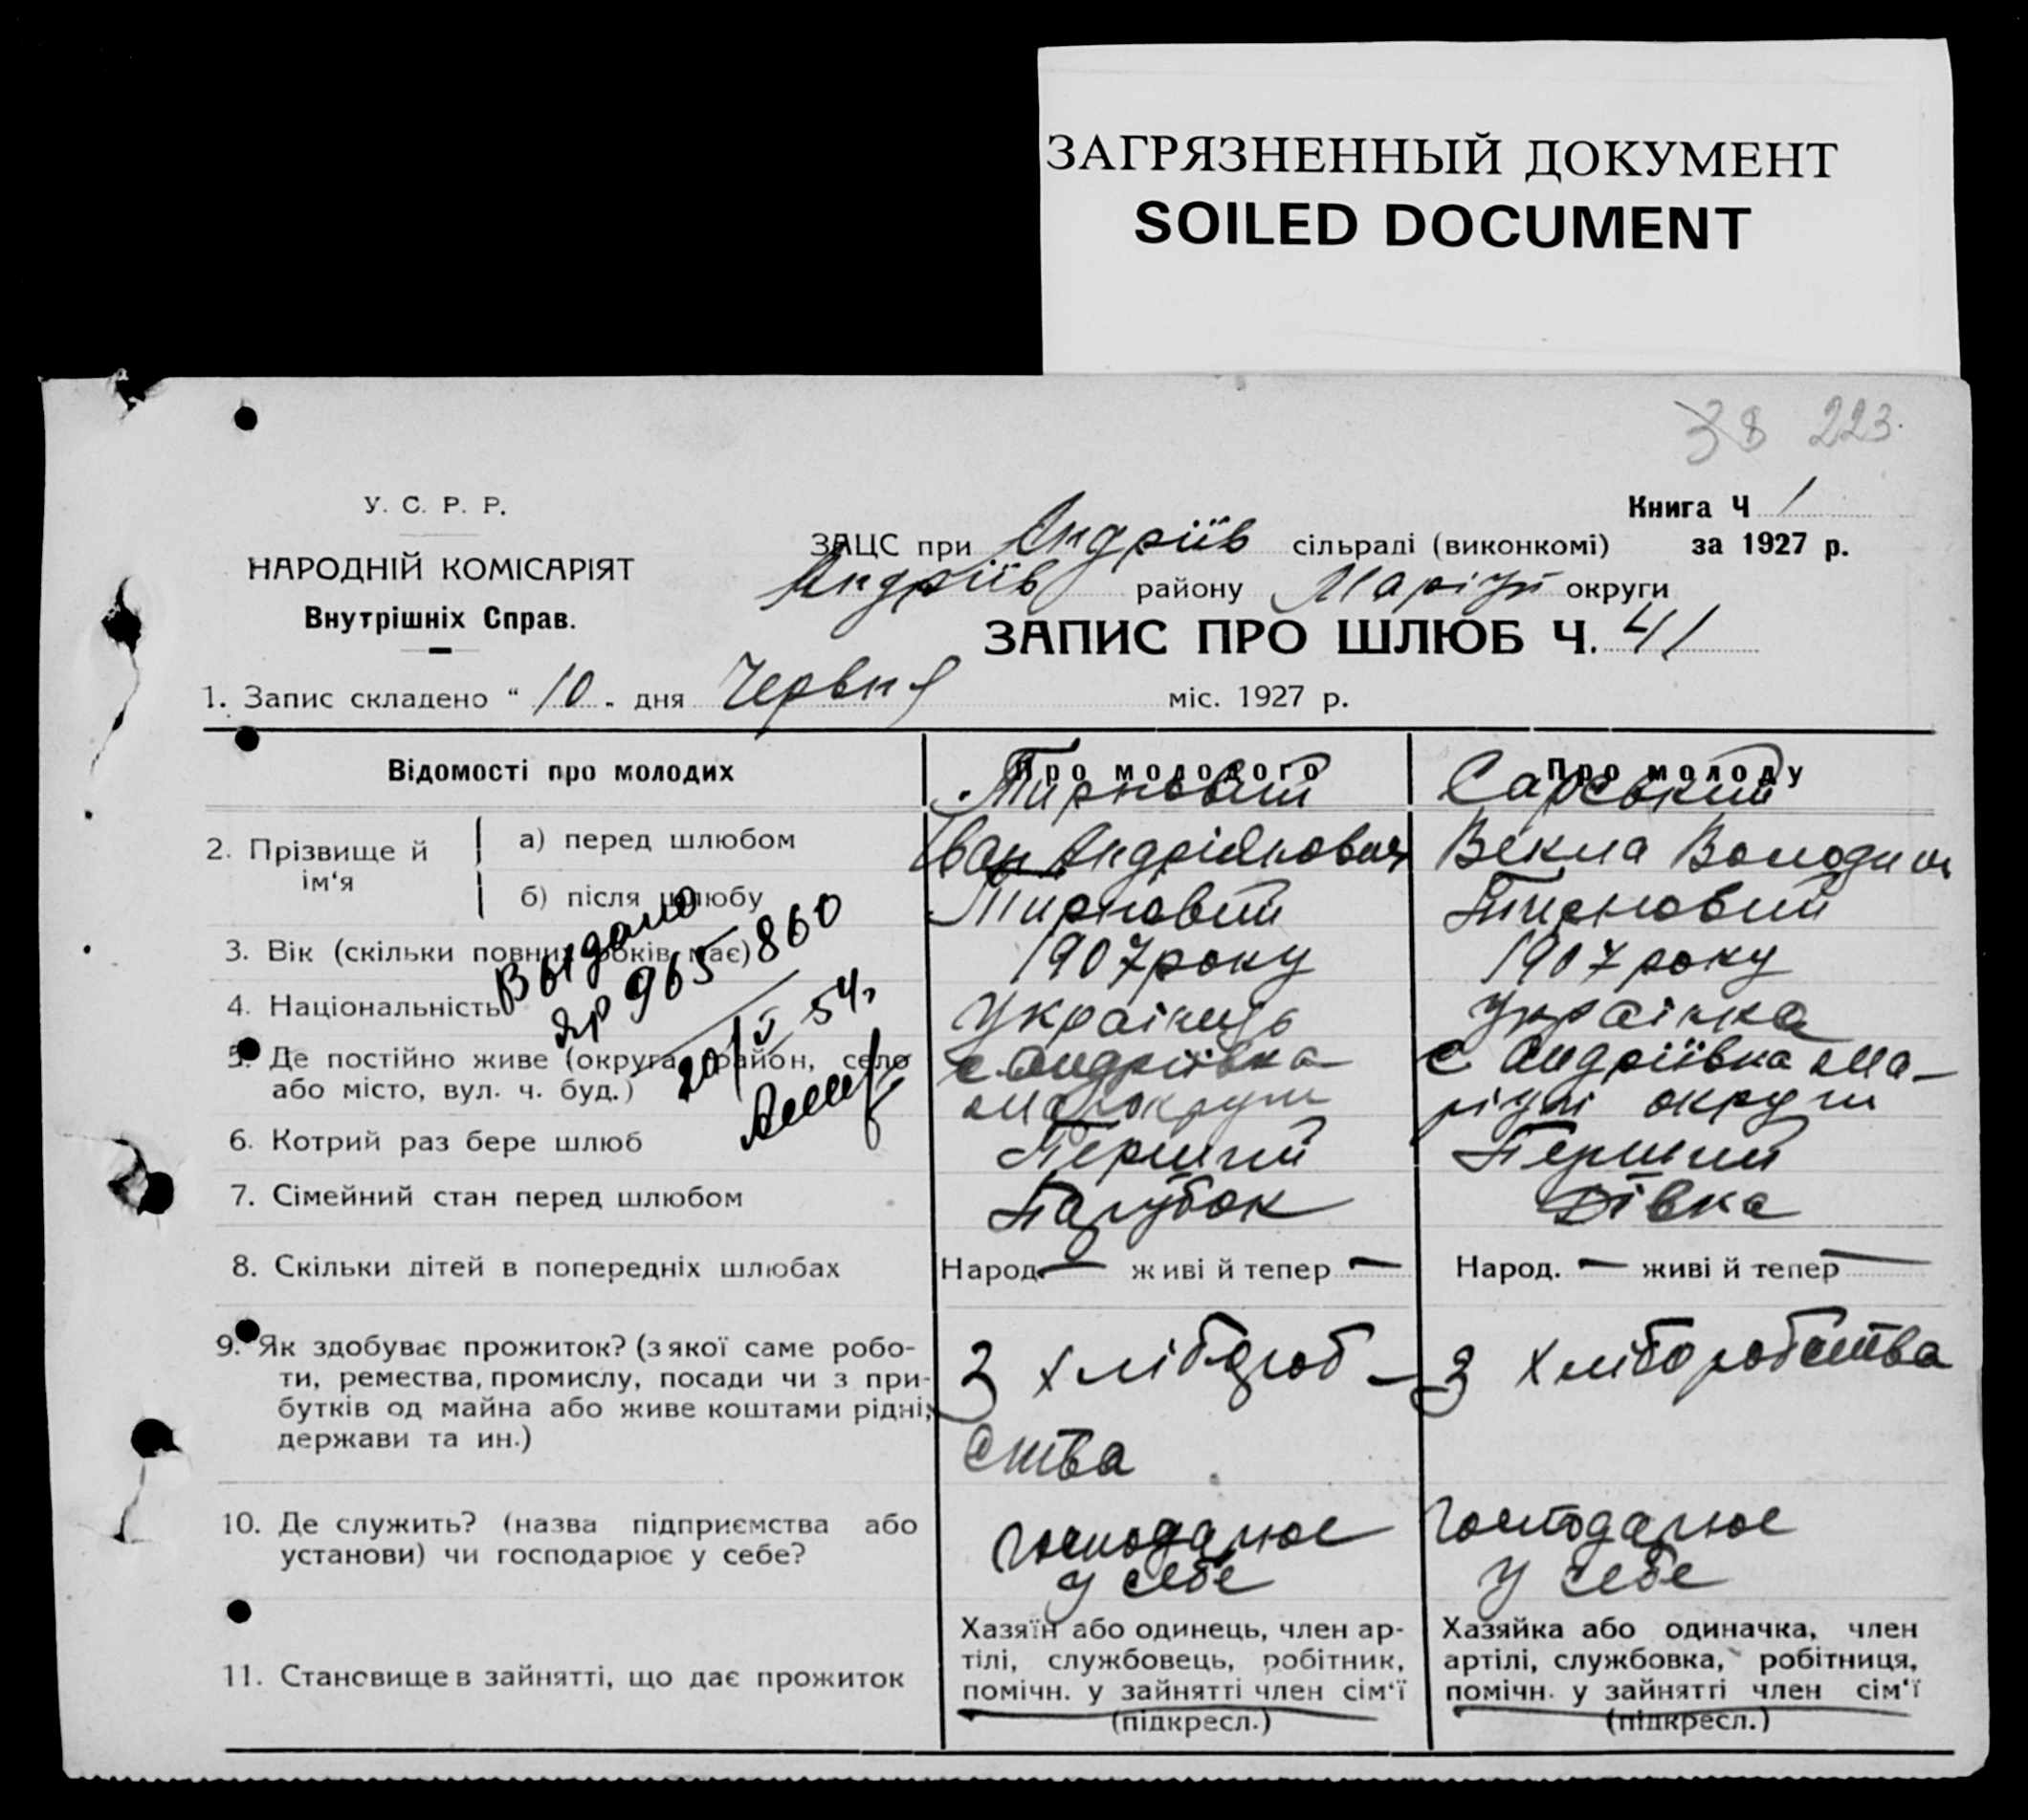 ЗАГРЯЗНЕННЫЙ ДОКУМЕНТ
SOILED DOCUMENT
38 223.
У. С. Р. Р.
НАРОДНІЙ КОМІСАРІЯТ
Внутрішніх Справ.
Книга Ч 1
ЗАЦС при Андріїв сільраді (виконкомі) за 1927 р.
Андріїв району Маріуп округи
ЗАПИС ПРО ШЛЮБ Ч. 41
1. Запис складено “ 10 „ дня Червня міс. 1927 р.
Відомості про молодих
Про молодого
Про молоду
2. Прізвище й ім‘я
а) перед шлюбом
Тирновий
Іван Андріянович
Сарський
Векла Володим
б) після шлюбу
Тирновий
Тирновий
3. Вік (скільки повних років має)
1907 року
1907 року
4. Національність
Українець
Українка
5. Де постійно живе (округа, район, село
або місто, вул. ч. буд.)
с Андріївка
Мар округи
с Андріївка Ма–
ріупі округи
6. Котрий раз бере шлюб
Перший
Перший
7. Сімейний стан перед шлюбом
Парубок
Дівка
8. Скільки дітей в попередніх шлюбах
Народ. — живі й тепер —
Народ. — живі й тепер —
9. Як здобуває прожиток? (з якої саме робо-
ти, ремества, промислу, посади чи з при-
бутків од майна або живе коштами рідні,
держави та ин.)
З хлібороб–
ства
З хліборобства
10. Де служить? (назва підприємства або
установи) чи господарює у себе?
Господарює
у себе
Господарює
у себе
11. Становище в зайнятті, що дає прожиток
Хазяїн або одинець, член ар-
тілі, службовець, робітник,
помічн. у зайнятті член сім‘ї
(підкресл.)
Хазяйка або одиначка, член
артілі, службовка, робітниця,
помічн. у зайнятті член сім‘ї
(підкресл.)
Выдано
965860
20/V 54г